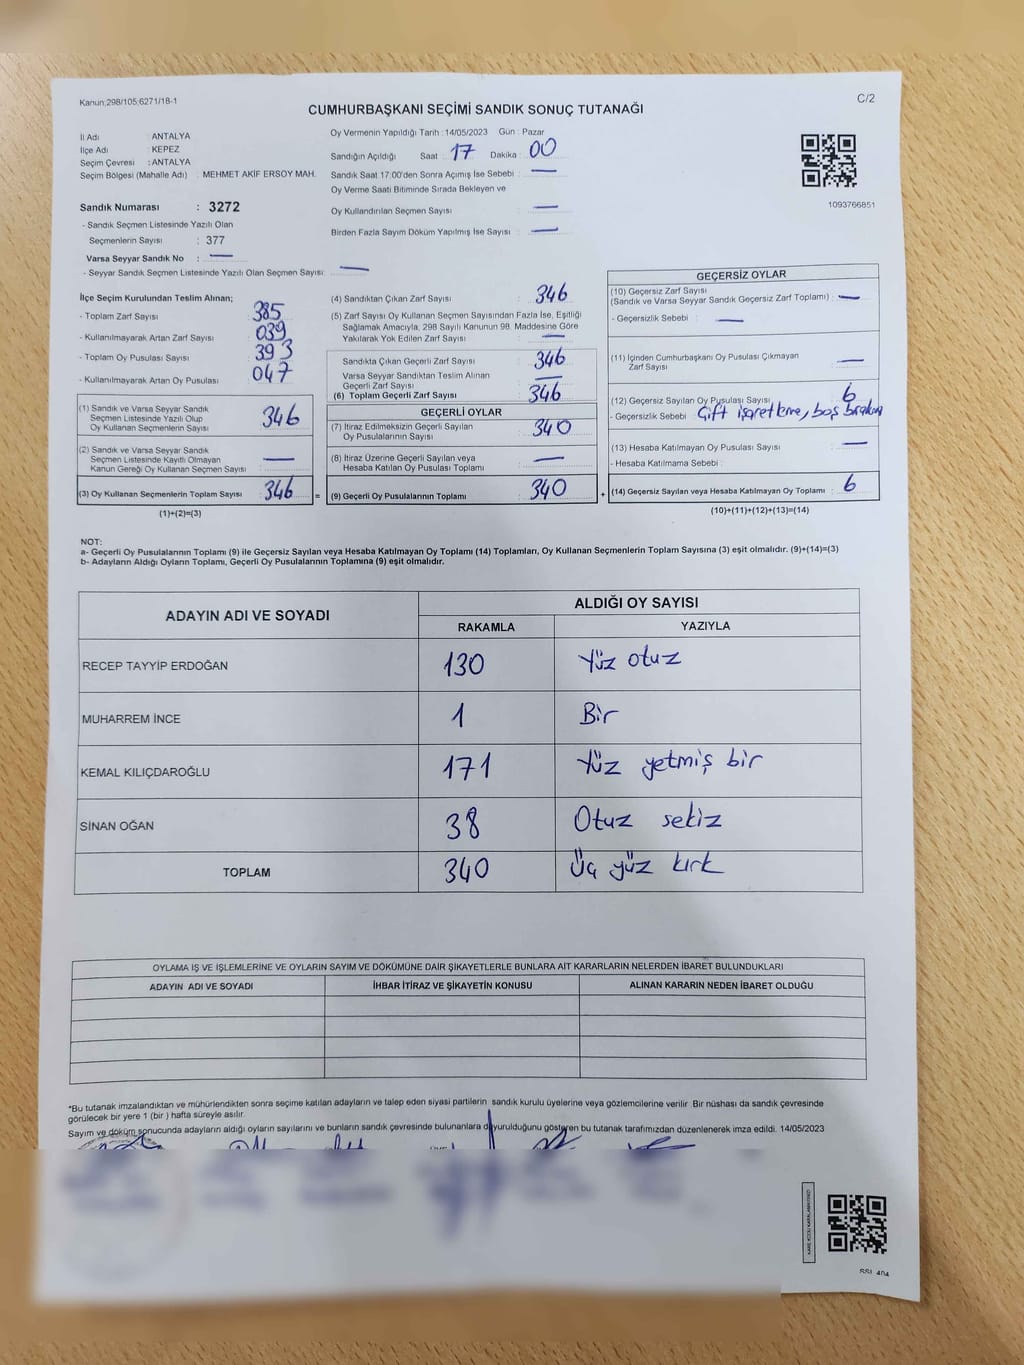 Kanun:298/105;6271/18-1
C/2
CUMHURBAŞKANI SEÇİMİ SANDIK SONUÇ TUTANAĞI
İl Adı : ANTALYA
İlçe Adı : KEPEZ
Seçim Çevresi : ANTALYA
Seçim Bölgesi (Mahalle Adı) : MEHMET AKİF ERSOY MAH.
Sandık Numarası : 3272
- Sandık Seçmen Listesinde Yazılı Olan
Seçmenlerin Sayısı : 377
Varsa Seyyar Sandık No : —
- Seyyar Sandık Seçmen Listesinde Yazılı Olan Seçmen Sayısı: —
Oy Vermenin Yapıldığı Tarih : 14/05/2023 Gün : Pazar
Sandığın Açıldığı Saat : 17 Dakika : 00
Sandık Saat 17:00'den Sonra Açımış İse Sebebi : —
Oy Verme Saati Bitiminde Sırada Bekleyen ve
Oy Kullandırılan Seçmen Sayısı : —
Birden Fazla Sayım Döküm Yapılmış İse Sayısı : —
1093766851
İlçe Seçim Kurulundan Teslim Alınan;
- Toplam Zarf Sayısı : 385
- Kullanılmayarak Artan Zarf Sayısı : 039
- Toplam Oy Pusulası Sayısı : 393
- Kullanılmayarak Artan Oy Pusulası : 047
(1) Sandık ve Varsa Seyyar Sandık
Seçmen Listesinde Yazılı Olup
Oy Kullanan Seçmenlerin Sayısı : 346
(2) Sandık ve Varsa Seyyar Sandık
Seçmen Listesinde Kayıtlı Olmayan
Kanun Gereği Oy Kullanan Seçmen Sayısı : —
(3) Oy Kullanan Seçmenlerin Toplam Sayısı : 346 =
(1)+(2)=(3)
(4) Sandıktan Çıkan Zarf Sayısı : 346
(5) Zarf Sayısı Oy Kullanan Seçmen Sayısından Fazla İse, Eşitliği
Sağlamak Amacıyla, 298 Sayılı Kanunun 98. Maddesine Göre
Yakılarak Yok Edilen Zarf Sayısı : —
Sandıkta Çıkan Geçerli Zarf Sayısı : 346
Varsa Seyyar Sandıktan Teslim Alınan
Geçerli Zarf Sayısı : —
(6) Toplam Geçerli Zarf Sayısı : 346
GEÇERLİ OYLAR
(7) İtiraz Edilmeksizin Geçerli Sayılan
Oy Pusulalarının Sayısı : 340
(8) İtiraz Üzerine Geçerli Sayılan veya
Hesaba Katılan Oy Pusulası Toplamı : —
(9) Geçerli Oy Pusulalarının Toplamı : 340 +
GEÇERSİZ OYLAR
(10) Geçersiz Zarf Sayısı
(Sandık ve Varsa Seyyar Sandık Geçersiz Zarf Toplamı) : —
- Geçersizlik Sebebi : —
(11) İçinden Cumhurbaşkanı Oy Pusulası Çıkmayan
Zarf Sayısı : —
(12) Geçersiz Sayılan Oy Pusulası Sayısı : 6
- Geçersizlik Sebebi : Çift işaretleme, boş bırakma
(13) Hesaba Katılmayan Oy Pusulası Sayısı : —
- Hesaba Katılmama Sebebi :
(14) Geçersiz Sayılan veya Hesaba Katılmayan Oy Toplamı : 6
(10)+(11)+(12)+(13)=(14)
NOT:
a- Geçerli Oy Pusulalarının Toplamı (9) ile Geçersiz Sayılan veya Hesaba Katılmayan Oy Toplamı (14) Toplamları, Oy Kullanan Seçmenlerin Toplam Sayısına (3) eşit olmalıdır. (9)+(14)=(3)
b- Adayların Aldığı Oyların Toplamı, Geçerli Oy Pusulalarının Toplamına (9) eşit olmalıdır.
ADAYIN ADI VE SOYADI
ALDIĞI OY SAYISI
RAKAMLA YAZIYLA
RECEP TAYYİP ERDOĞAN 130 Yüz otuz
MUHARREM İNCE 1 Bir
KEMAL KILIÇDAROĞLU 171 Yüz yetmiş bir
SİNAN OĞAN 38 Otuz sekiz
TOPLAM 340 Üç yüz kırk
OYLAMA İŞ VE İŞLEMLERİNE VE OYLARIN SAYIM VE DÖKÜMÜNE DAİR ŞİKAYETLERLE BUNLARA AİT KARARLARIN NELERDEN İBARET BULUNDUKLARI
ADAYIN ADI VE SOYADI İHBAR İTİRAZ VE ŞİKAYETİN KONUSU ALINAN KARARIN NEDEN İBARET OLDUĞU
*Bu tutanak imzalandıktan ve mühürlendikten sonra seçime katılan adayların ve talep eden siyasi partilerin sandık kurulu üyelerine veya gözlemcilerine verilir. Bir nüshası da sandık çevresinde
görülecek bir yere 1 (bir) hafta süreyle asılır.
Sayım ve döküm sonucunda adayların aldığı oyların sayılarını ve bunların sandık çevresinde bulunanlara duyurulduğunu gösteren bu tutanak tarafımızdan düzenlenerek imza edildi. 14/05/2023